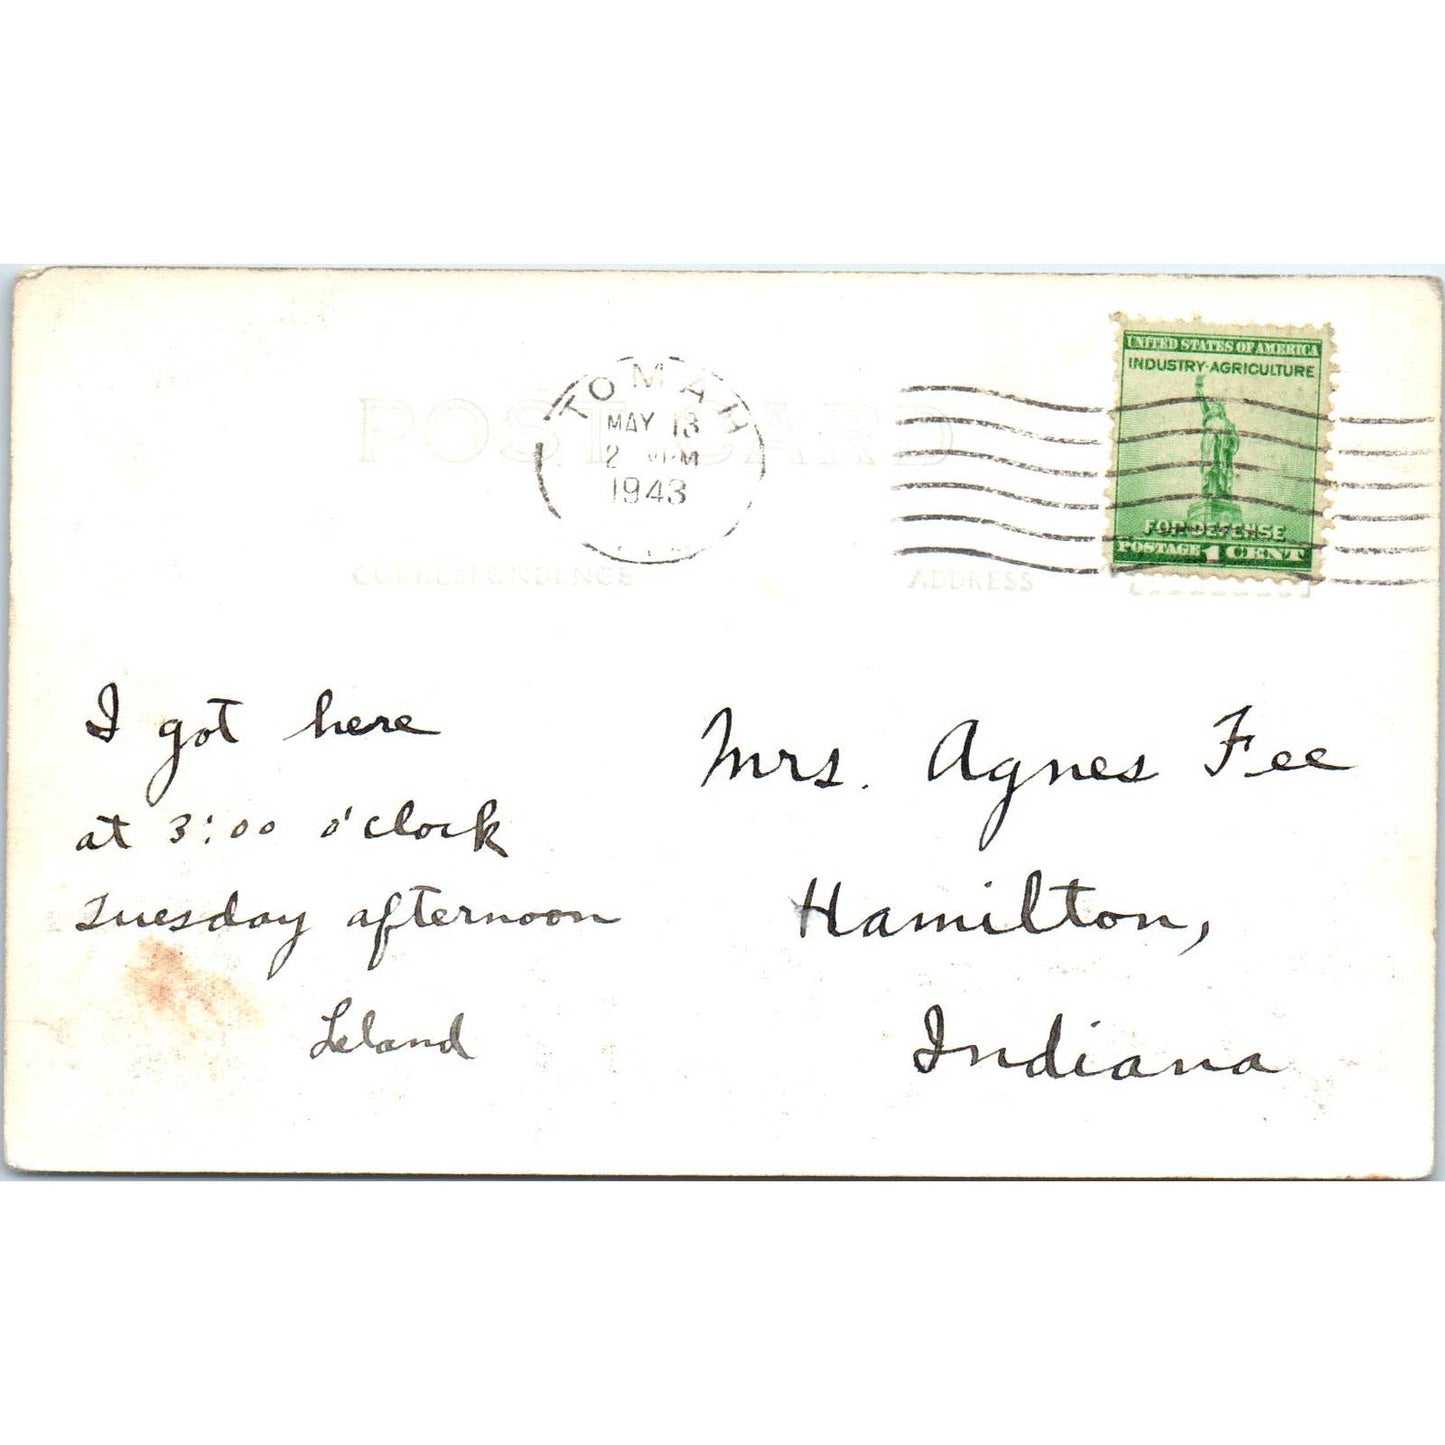 POST CARD
TOMAH
MAY 13
2 PM
1943
UNITED STATES OF AMERICA
INDUSTRY-AGRICULTURE
FOR DEFENSE
POSTAGE 1 CENT
CORRESPONDENCE
ADDRESS
I got here
at 3:00 o'clock
Tuesday afternoon
Leland
Mrs. Agnes Fee
Hamilton,
Indiana